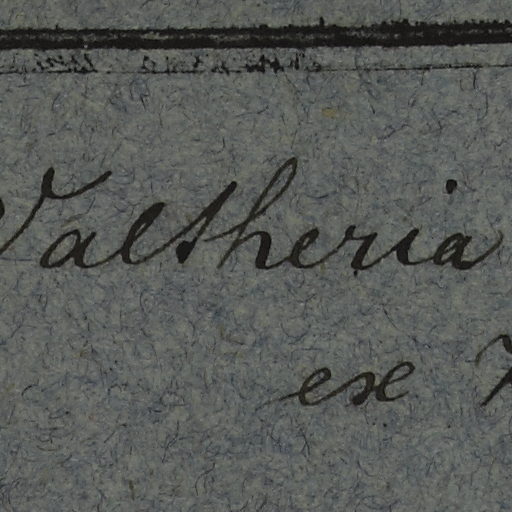 Waltheria
ex